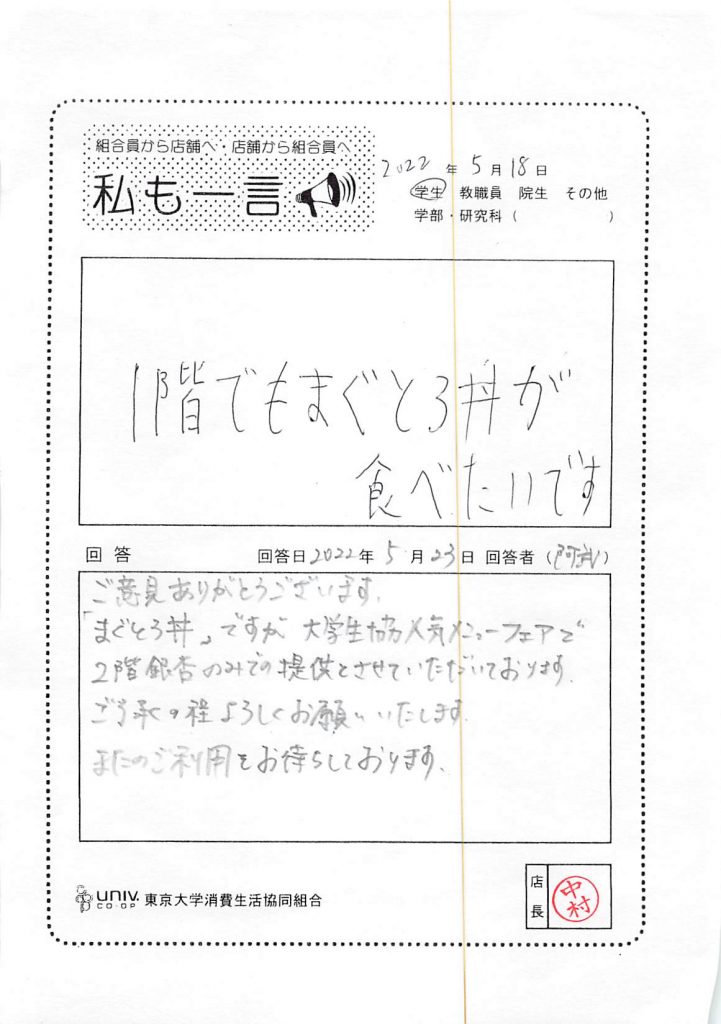 組合員から店舗へ・店舗から組合員へ
私も一言
2022年5月18日
学生 教職員 院生 その他
学部・研究科( )
1階でもまぐとろ丼が
食べたいです
回答 回答日2022年5月23日 回答者(阿武)
ご意見ありがとうございます。
「まぐとろ丼」ですが 大学生協人気メニューフェアで
2階銀杏のみでの提供とさせていただいております。
ご了承の程よろしくお願いいたします。
またのご利用をお待ちしております。
UNIV. 東京大学消費生活協同組合
CO-OP
店長 中村